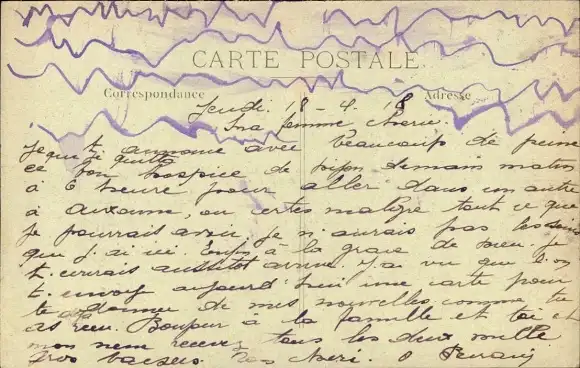 CARTE POSTALE
Correspondance
Adresse
Jeudi. 18 - 4. 18
Ma femme cherie.
Je t. annonce avec beaucoup de peine
que je quitte
ce bon hospice de Dijon demain matin
à 6 heure pour aller dans un autre
à Auxonne, ou certes malgre tout ce que
je pourrais avoir. je n'aurais pas les soins
que j'ai ici. Enfin à la grace de Dieu. Je
t. ecrirais aussitot arrivé. J'ai vu que l'on
t. envoy aujourd'hui une carte pour
te donner de mes nouvelles comme tu
as deja recu. Bonjour à la famille et toi et
mon recevez tous les deux mille
gros baisers. Ton cheri.